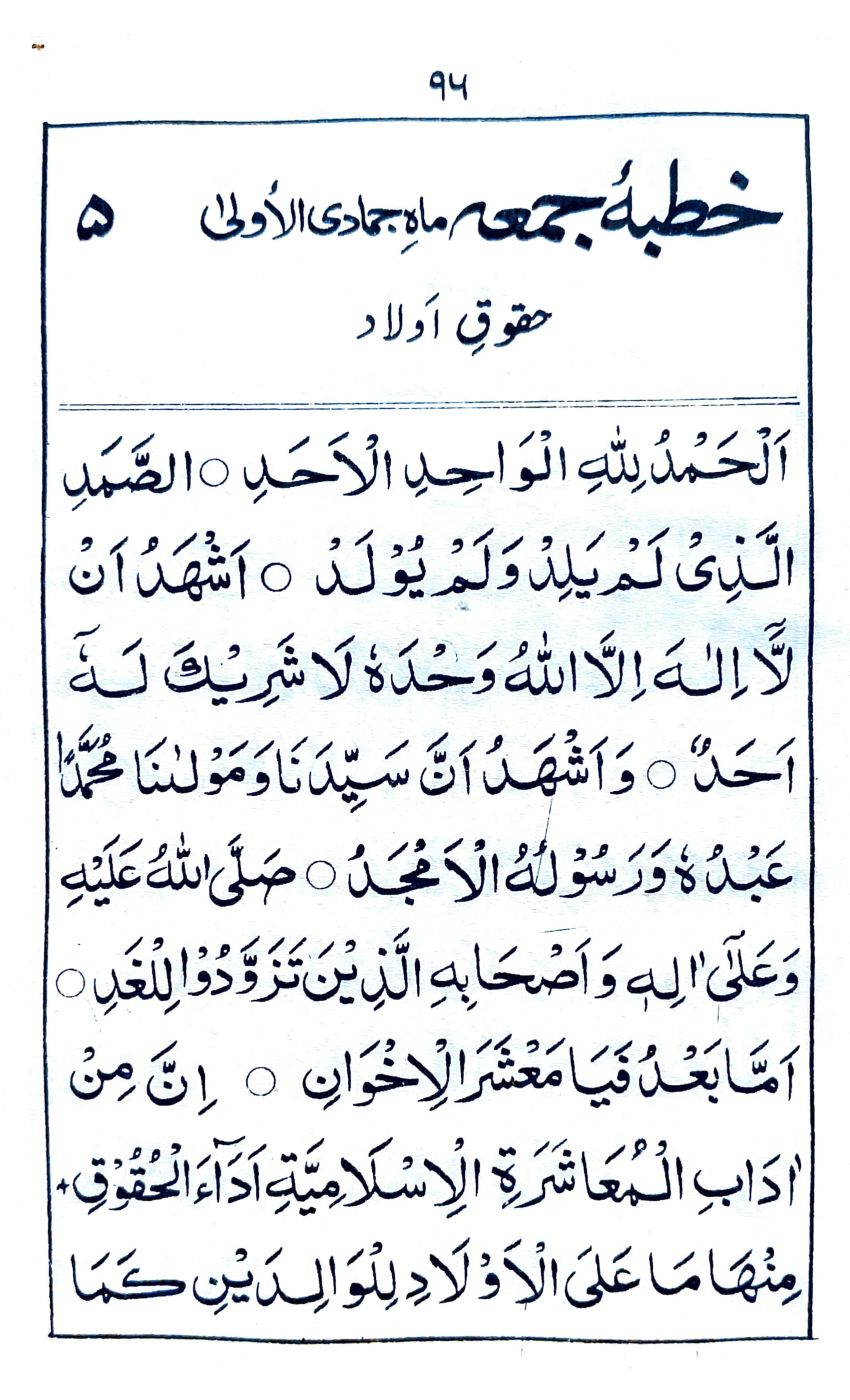 ۹۶
خطبۂ جمعہ ماہِ جمادی الأولیٰ ۵
حقوقِ اَولاد
اَلْحَمْدُ لِلّٰهِ الْوَاحِدِ الْاَحَدِ ○ الصَّمَدِ
الَّذِیْ لَمْ یَلِدْ وَلَمْ یُوْلَدْ ○ اَشْهَدُ اَنْ
لَّآ اِلٰهَ اِلَّا اللّٰهُ وَحْدَهٗ لَا شَرِیْكَ لَهٗٓ
اَحَدٌ ○ وَاَشْهَدُ اَنَّ سَیِّدَنَا وَمَوْلٰىنَا مُحَمَّدًا
عَبْدُهٗ وَرَسُوْلُهُ الْاَمْجَدُ ○ صَلَّی اللّٰهُ عَلَیْهِ
وَعَلٰٓی اٰلِهٖ وَاَصْحَابِهِ الَّذِیْنَ تَزَوَّدُوْا لِلْغَدِ ○
اَمَّا بَعْدُ فَیَا مَعْشَرَ الْاِخْوَانِ ○ اِنَّ مِنْ
اٰدَابِ الْمُعَاشَرَةِ الْاِسْلَامِیَّةِ اَدَآءَ الْحُقُوْقِ +
مِنْهَا مَا عَلَی الْاَوْلَادِ لِلْوَالِدَیْنِ كَمَا